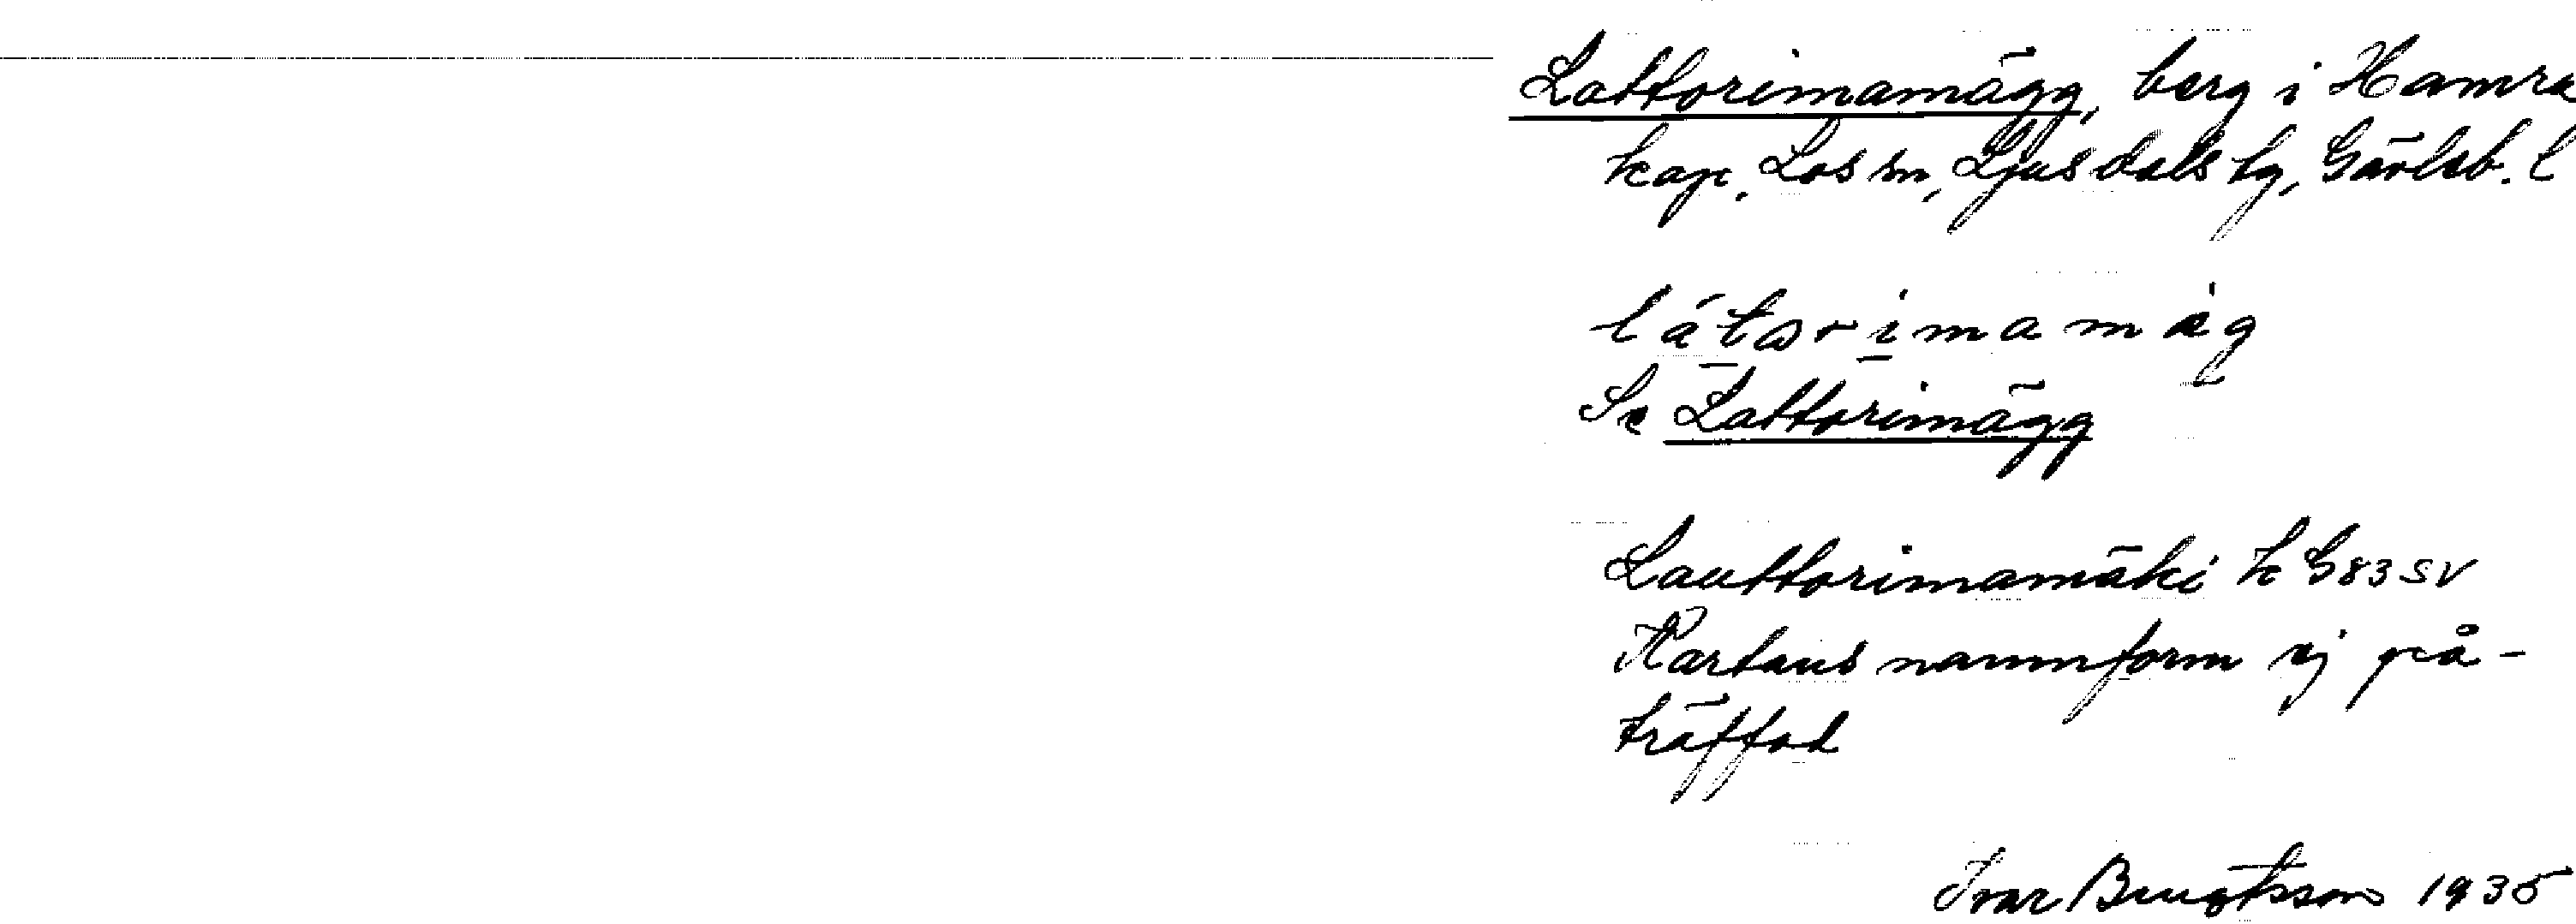 Lattorimamägg, berg i Hamra
kap. Los sn, Ljusdals tg, Gävleb. l
Se Lattorimägg
Lauttorimamäki k G83 SV
Kartans namnform ej på-
träffad
Ivar Bengtsson 1935